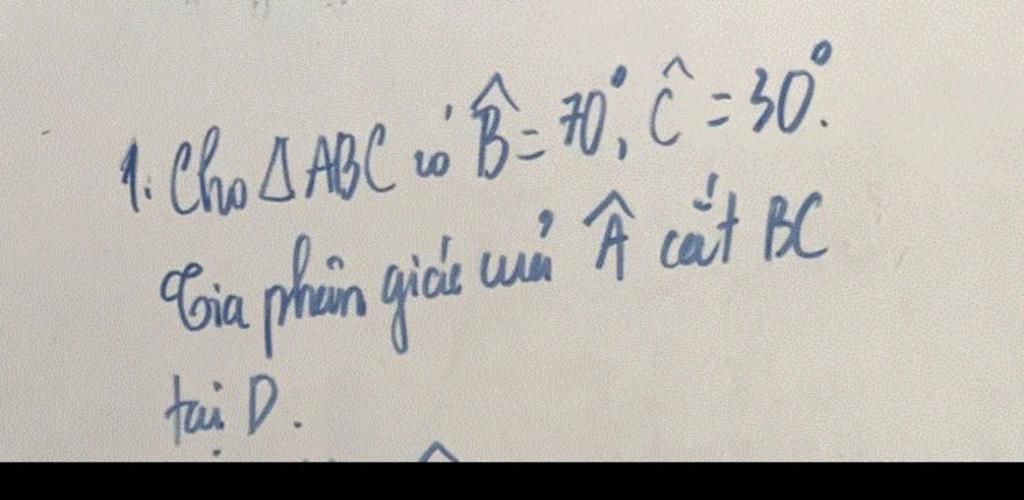 1. Cho ΔABC có B̂ = 70°, Ĉ = 30°.
Tia phân giác của Â cắt BC
tại D.